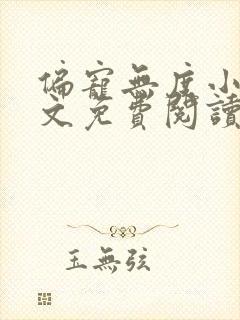 偏寵無度小
文免費閱讀
玉無弦